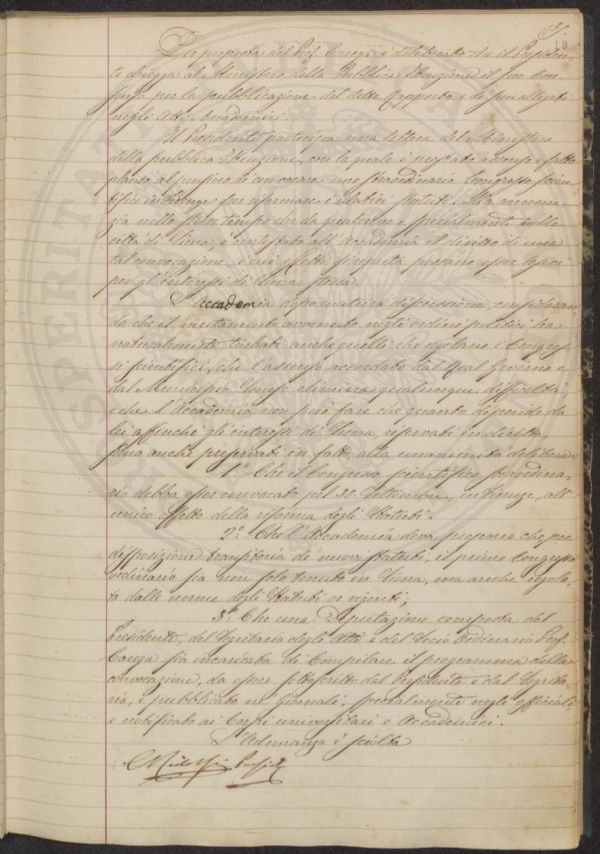 Su proposta del Prof. Careza è deliberato che il Presiden-
te chiegga al Ministero della Pubblica Istruzione il suo con-
corso per la pubblicazione del detto Rapporto e de' suoi allegati
negli Atti Accademici.
Il Presidente partecipa una lettera del Ministero
della pubblica Istruzione, con la quale è prestato assenso e fatto
plauso al pensiero di convocare uno straordinario Congresso scien-
tifico in Firenze per riformare i relativi Statuti. Ma annun-
zia nello stesso tempo che da qualcuno e specialmente nella
città di Siena, è contestato all'Accademia il diritto di una
tal convocazione, i cui effetti si reputa possano essere lesivi
per gl'interessi di Siena stessa.
L'Accademia dopo matura discussione, consideran-
do che il mutamento avvenuto negli ordini politici ha
naturalmente turbati anche quelli che regolano i Congres-
si scientifici, che l'assenso accordato dal Real Governo e
dal Municipio Senese elimina qualunque difficoltà
e che l'Accademia non può fare che quanto dipende da
lei affinchè gli interessi di Siena, riservati in diritto,
sieno anche preservati in fatto, alla unanimità delibera:
1.° Che il Congresso scientifico straordina-
rio debba esser convocato pel 30 Settembre, in Firenze, all'
unico effetto della riforma degli Statuti.
2.° Che l'Accademia deva proporre che per
disposizione transitoria de' nuovi statuti, il primo Congresso
ordinario sia non solo tenuto in Siena, ma anche regola-
to dalle norme degli Statuti or vigenti;
3.° Che una Deputazione composta del
Presidente, del Segretario degli Atti e del Socio Ordinario Prof.
Careza sia incaricata di compilare il programma della
convocazione, da esser sottoscritto dal Presidente e dal Segreta-
rio, e pubblicato ne' Giornali, specialmente negli officiali,
e notificato ai Corpi universitari e Accademici.
L'Adunanza è sciolta